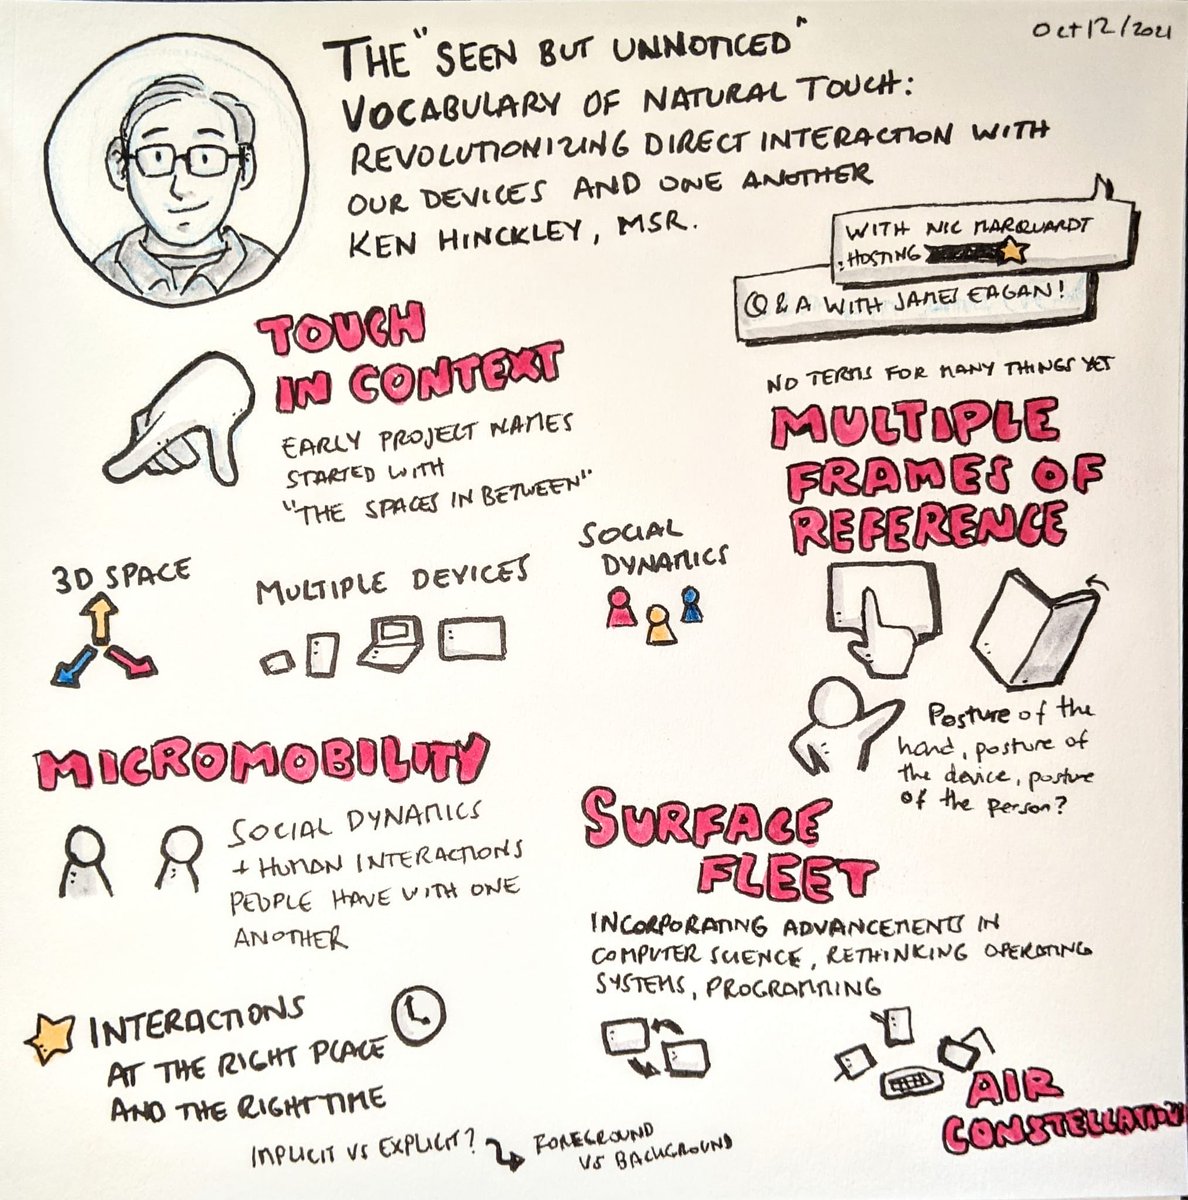 Oct 12/2021
THE "SEEN BUT UNNOTICED"
VOCABULARY OF NATURAL TOUCH:
REVOLUTIONIZING DIRECT INTERACTION WITH
OUR DEVICES AND ONE ANOTHER
KEN HINCKLEY, MSR.
WITH NIC MARQUARDT
HOSTING
Q & A WITH JAMES EAGAN!
TOUCH
IN CONTEXT
EARLY PROJECT NAMES
STARTED WITH
"THE SPACES IN BETWEEN"
3D SPACE
MULTIPLE DEVICES
SOCIAL
DYNAMICS
NO TERMS FOR MANY THINGS YET
MULTIPLE
FRAMES OF
REFERENCE
Posture of the
hand, posture of
the device, posture
of the person?
MICROMOBILITY
SOCIAL DYNAMICS
+ HUMAN INTERACTIONS
PEOPLE HAVE WITH ONE
ANOTHER
SURFACE
FLEET
INCORPORATING ADVANCEMENTS IN
COMPUTER SCIENCE, RETHINKING OPERATING
SYSTEMS, PROGRAMMING
INTERACTIONS
AT THE RIGHT PLACE
AND THE RIGHT TIME
IMPLICIT VS EXPLICIT?
FOREGROUND
VS BACKGROUND
AIR
CONSTELLATIONS